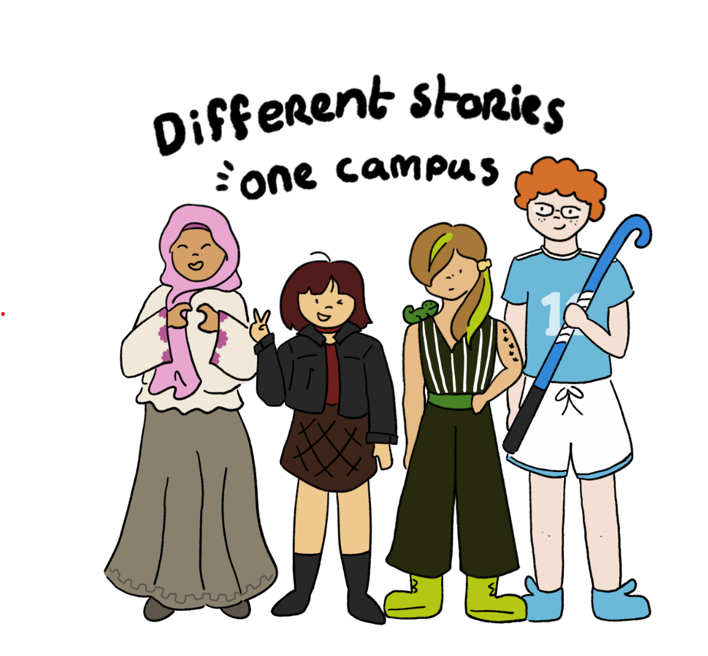 Different stories
one campus